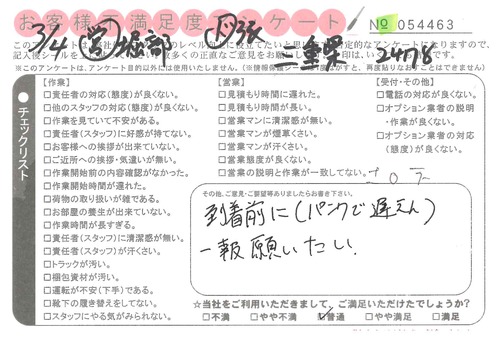 お客様満足度アンケート
No 054463
3/4 営 堀部 月張 三重県 2478
※このアンケートは、アンケート目的以外には使用いたしません。
チェックリスト
【作業】
□責任者の対応(態度)が良くない。
□他のスタッフの対応(態度)が良くない。
□作業を見ていて不安がある。
□責任者(スタッフ)に好感が持てない。
□お客様への挨拶が出来ていない。
□ご近所への挨拶・気遣いが無い。
□作業開始前の内容確認がなかった。
□作業開始時間が遅れた。
□荷物の取り扱いが雑である。
□お部屋の養生が出来ていない。
□作業時間が長すぎる。
□責任者(スタッフ)に清潔感が無い。
□責任者(スタッフ)が汗くさい。
□トラックが汚い。
□梱包資材が汚い。
□運転が不安(下手)である。
□靴下の履き替えをしてない。
□スタッフにやる気がみられない。
【営業】
□見積もり時間に遅れた。
□見積もり時間が長い。
□営業マンに清潔感が無い。
□営業マンが煙草くさい。
□営業マンが汗くさい。
□営業態度が良くない。
□営業の説明と作業が一致してない。
【受付・その他】
□電話の対応が良くない。
□オプション業者の説明
・作業が良くない。
□オプション業者の対応
(態度)が良くない。
その他、ご意見・ご要望等ありましたらお書き下さい。
到着前に(パンクで遅えん)
一報願いたい。
☆当社をご利用いただきまして、ご満足いただけたでしょうか?
□不満 □やや不満 ☑普通 □やや満足 □満足